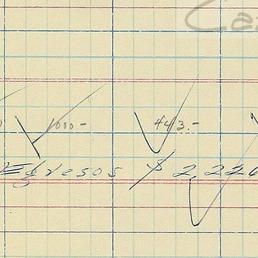 Ca
1000- 443.-
Egresos $ 2,226